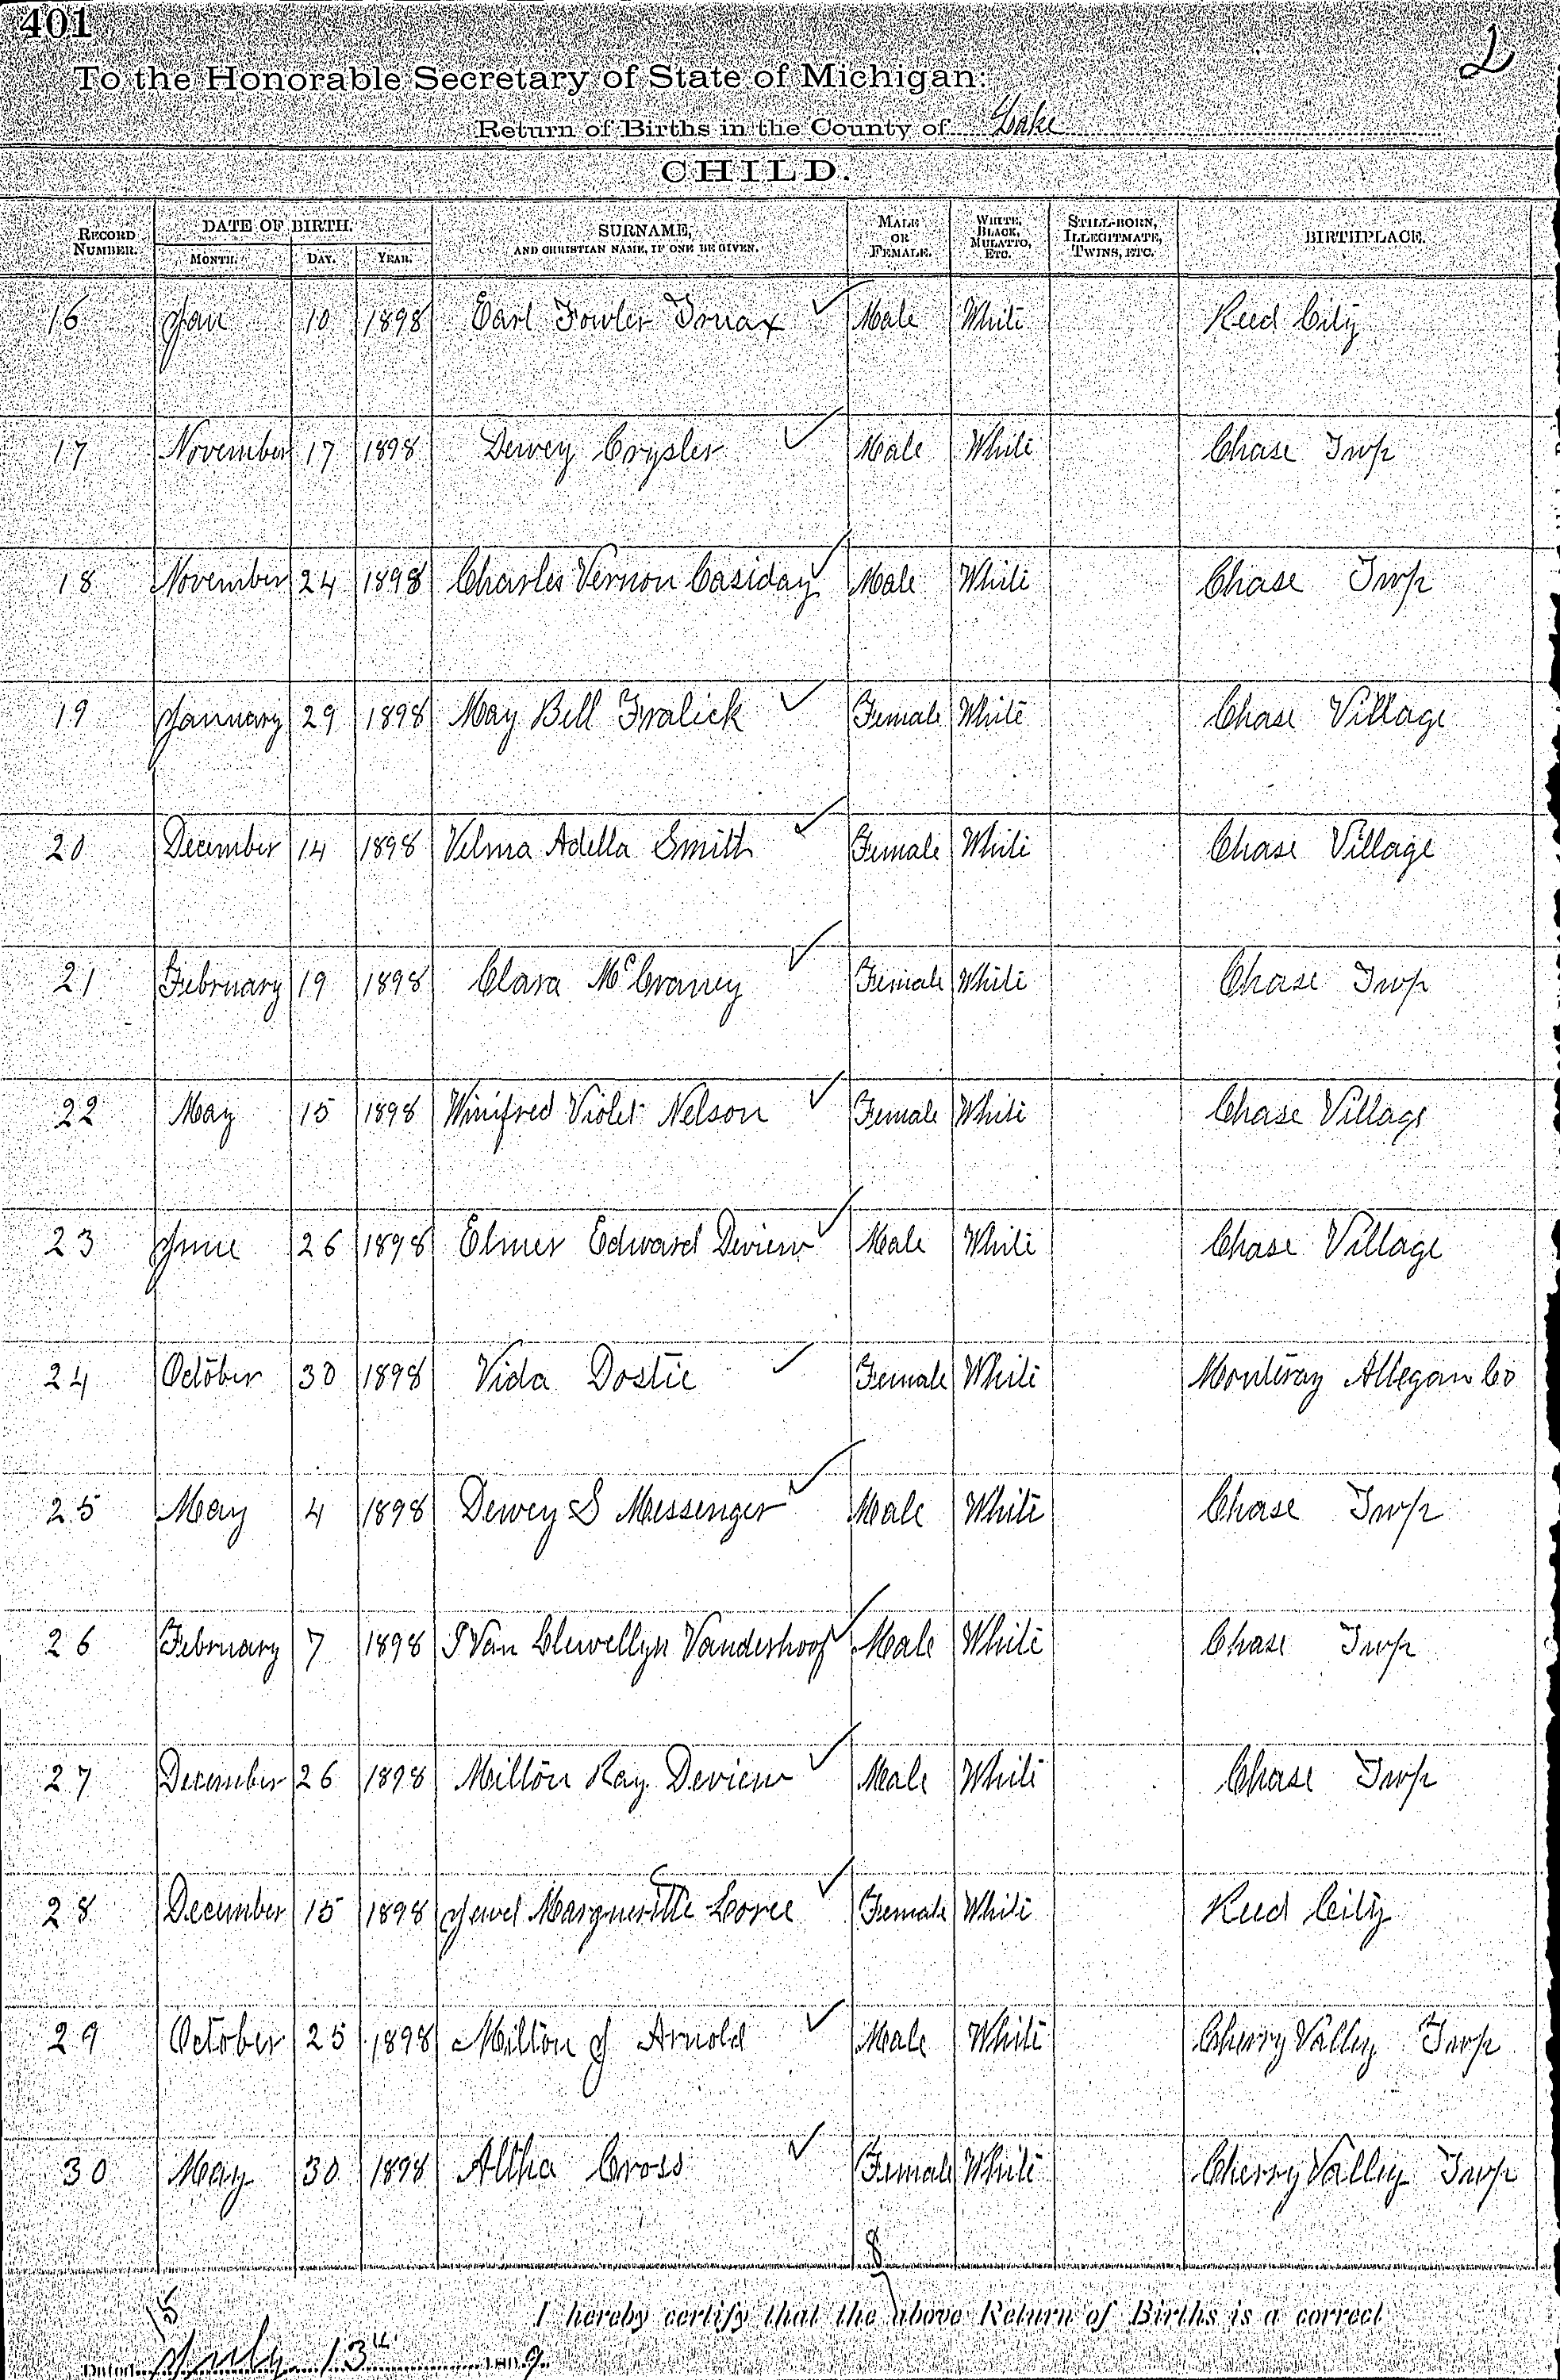 401
2
To the Honorable Secretary of State of Michigan:
Return of Births in the County of Lake
CHILD.
RECORD NUMBER. DATE OF BIRTH. MONTH. DAY. YEAR. SURNAME, AND CHRISTIAN NAME, IF ONE BE GIVEN. MALE OR FEMALE. WHITE, BLACK, MULATTO, ETC. STILL-BORN, ILLEGITIMATE, TWINS, ETC. BIRTHPLACE.
16 Jan 10 1898 Earl Fowler Truax Male White Reed City
17 November 17 1898 Dewey Crysler Male White Chase Twp
18 November 24 1898 Charles Vernon Casiday Male White Chase Twp
19 January 29 1898 May Bell Fralick Female White Chase Village
20 December 14 1898 Velma Adella Smith Female White Chase Village
21 February 19 1898 Clara McCraney Female White Chase Twp
22 May 15 1898 Winifred Violet Nelson Female White Chase Village
23 June 26 1898 Elmer Edward Deview Male White Chase Village
24 October 30 1898 Vida Dostie Female White Monteray Allegan Co
25 May 4 1898 Dewey S Messenger Male White Chase Twp
26 February 7 1898 I Van Llewellyn Vanderhoof Male White Chase Twp
27 December 26 1898 Milton Ray Deview Male White Chase Twp
28 December 15 1898 Jewel Margueritte Loree Female White Reed City
29 October 25 1898 Milton J Arnold Male White Cherry Valley Twp
30 May 30 1898 Altha Cross Female White Cherry Valley Twp
8
15
I hereby certify that the above Return of Births is a correct
Dated July 13th 9